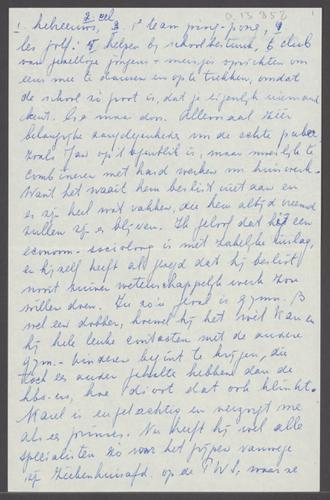 2. vel
D.13 853
1. hebreeuws, 3 1e team ping-pong, 4
les golf: 5 helpen bij schoolbestuur, 6 club
van gezellige jongens + meisjes oprichten om
eens mee te dansen en op te trekken, omdat
de school zo groot is, dat je eigenlijk niemand
kent. Ga maar door. Allemaal zeer
belangrijke aangelegenheden voor de echte puber
zoals Jan op 't ogenblik is, maar moeilijk te
combineren met hard werken om huiswerk.
Want het waait hem beslist niet aan en
er zijn heel wat vakken, die hem altijd vreemd
zullen zijn en blijven. Ik geloof dat hij een
econom. socioloog is met zakelijke inslag,
en hij zelf heeft al gezegd dat hij beslist
nooit zuiver wetenschappelijk werk zou
willen doen. In zo'n geval is gymn. B
wel een dobber, hoewel hij het wel kan en
hij hele leuke contacten met de andere
gym. kinderen begint te krijgen, die
toch een ander gehalte hebben dan de
hbs-ers, hoe idioot dat ook klinkt.
Karel is engelachtig en verzorgt me
als een prinses. Nu heeft hij wel alle
specialisten zo voor het grijpen vanwege
zijn Ziekenhuisafd. op de PWS, maar ze